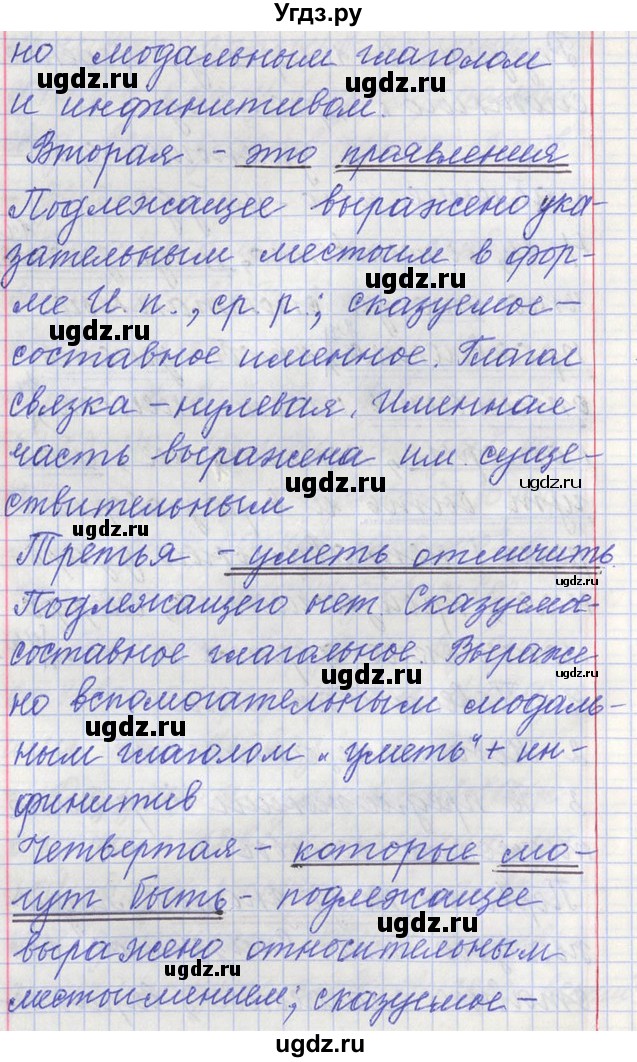 Угдз.ру
но модальным глаголом
ugdz.ru
ugdz.ru
и инфинитивом.
Вторая - это проявления
Подлежащее выражено ука-
зательным местоим в фор-
ugdz.ru
ме И.п., ср. р.; сказуемое -
ugdz.ru
составное именное. Глагол
связка - нулевая. Именная
часть выражена им. суще-
ugdz.ru
ugdz.ru
ствительным
ugdz.ru
Третья - уметь отличить.
ugdz.ru
Подлежащего нет Сказуемое-
составное глагольное. Выраже
ugdz.ru
но вспомогательным модаль-
ugdz.ru
ным глаголом „уметь" + ин-
финитив
Четвертая - которые мо-
гут быть - подлежащее
ugdz.ru
выражено относительным
ugdz.ru
местоимением; сказуемое -
ugdz.ru